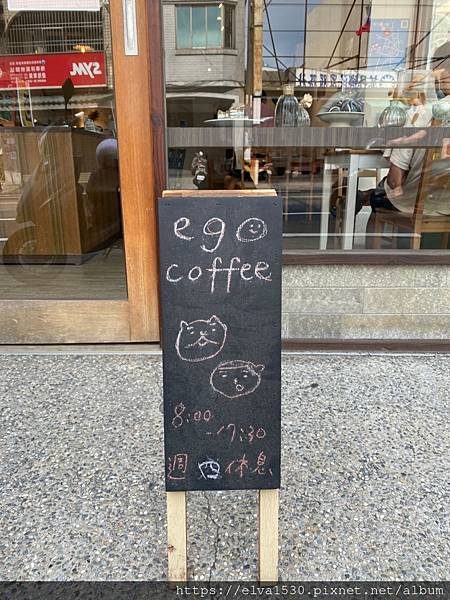 ego
coffee
8:00
-17:30
週四休息
SYM
https://elva1530.pixnet.net/album